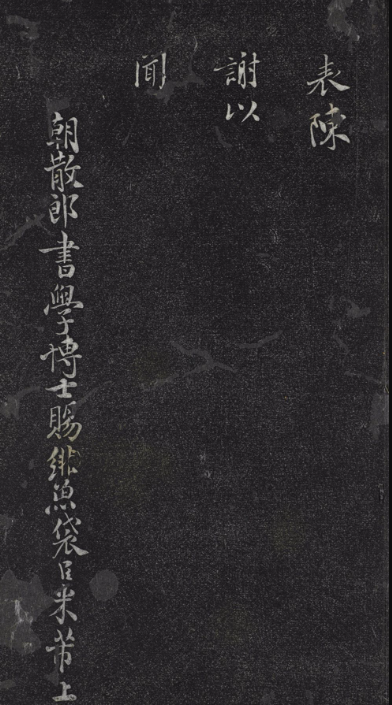 表陳
謝以
聞
朝散郎書學博士賜緋魚袋臣米芾上